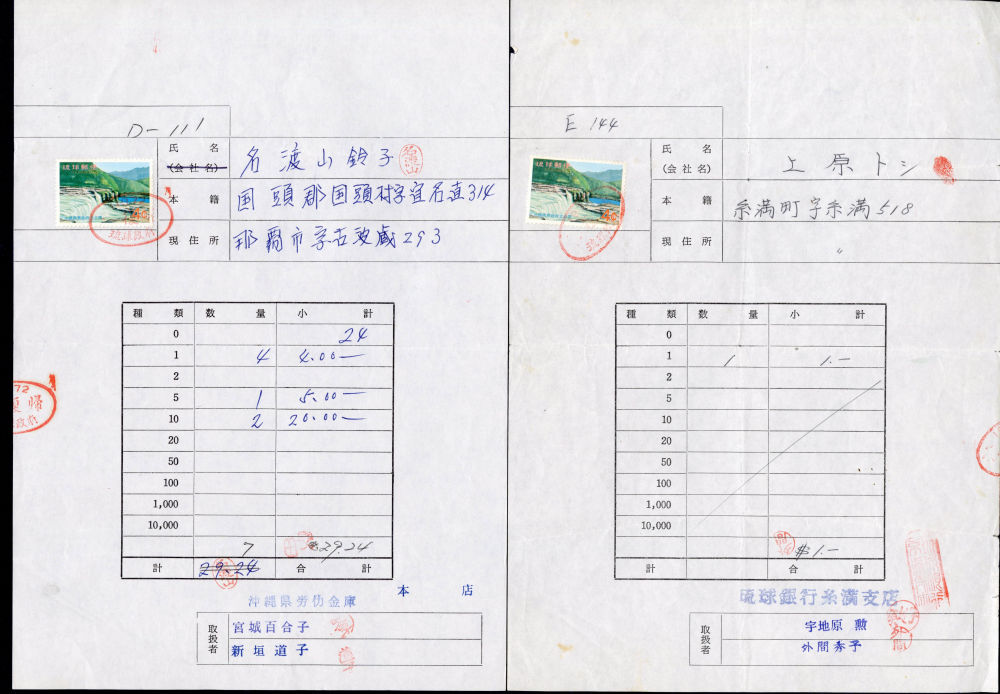 D-111
氏 名
(会社名)
名渡山鈴子
本 籍
国頭郡国頭村字宜名真314
現住所
那覇市字古波蔵293
琉球郵便
4¢
琉球政府
種 類 数 量 小 計
0 24
1 4 4.00—
2
5 1 5.00—
10 2 20.00—
20
50
100
1,000
10,000
7 $29.24
計 29.24 合 計
本 店
沖縄県労仂金庫
取扱者
宮城百合子
新垣道子
E 144
氏 名
(会社名)
上原トシ
本 籍
糸満町字糸満518
現住所
〃
琉球郵便
4¢
種 類 数 量 小 計
0
1 1 1.—
2
5
10
20
50
100
1,000
10,000
$1.—
計 合 計
琉球銀行糸満支店
取扱者
宇地原 勲
外間秀子